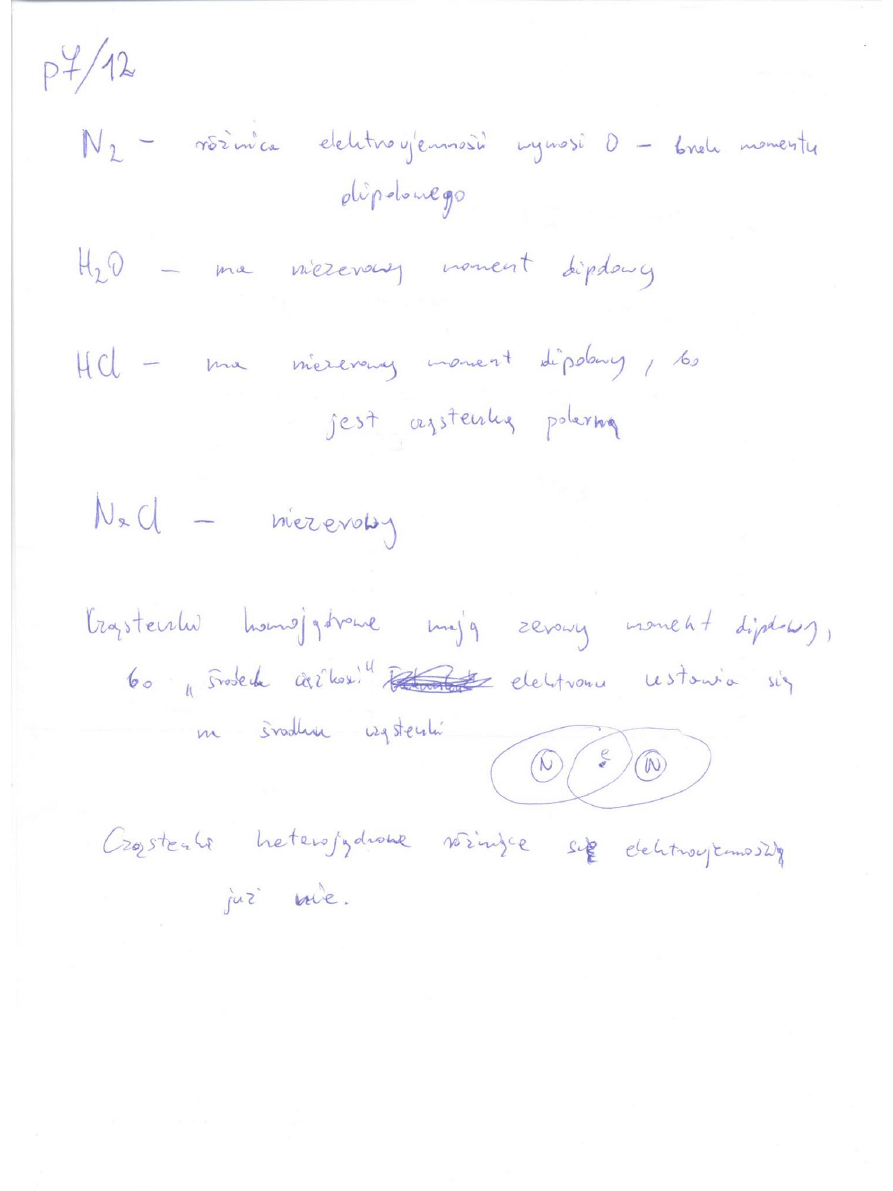 p7/12
N₂ – różnica elektroujemności wynosi 0 – brak momentu
dipolowego
H₂O – ma niezerowy moment dipolowy
HCl – ma niezerowy moment dipolowy, bo
jest cząsteczką polarną
NaCl – niezerowy
Cząsteczki homojądrowe mają zerowy moment dipolowy,
bo „środek ciężkości" elektronu ustawia się
na środku cząsteczki
N e N
Cząsteczki heterojądrowe różniące się elektroujemnością
już nie.